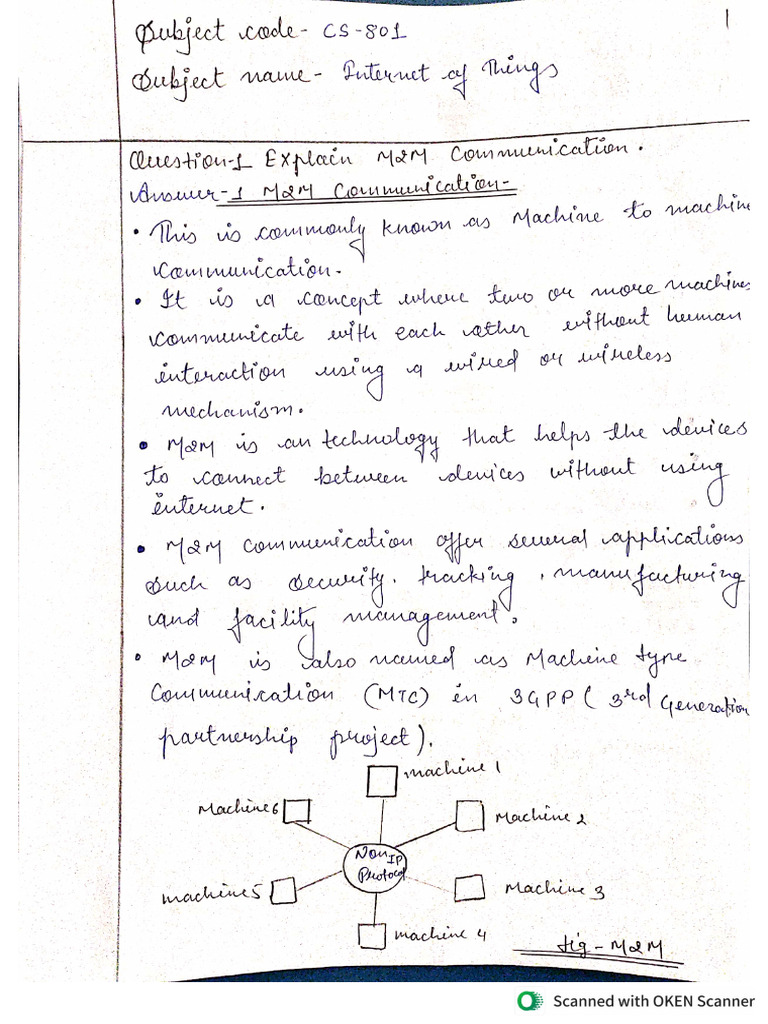 1
Subject code - CS-801
Subject name - Internet of Things
Question-1 Explain M2M Communication.
Answer-1 M2M Communication-
• This is commonly known as Machine to machine
communication.
• It is a concept where two or more machines
communicate with each other without human
interaction using a wired or wireless
mechanism.
• M2M is an technology that helps the devices
to connect between devices without using
internet.
• M2M communication offer several applications
such as security, tracking, manufacturing
and facility management.
• M2M is also named as Machine type
Communication (MTC) in 3GPP ( 3rd Generation
partnership project).
machine 1
Machine 6
Machine 2
Non IP
Protocol
machine 5
Machine 3
machine 4
fig - M2M
Scanned with OKEN Scanner